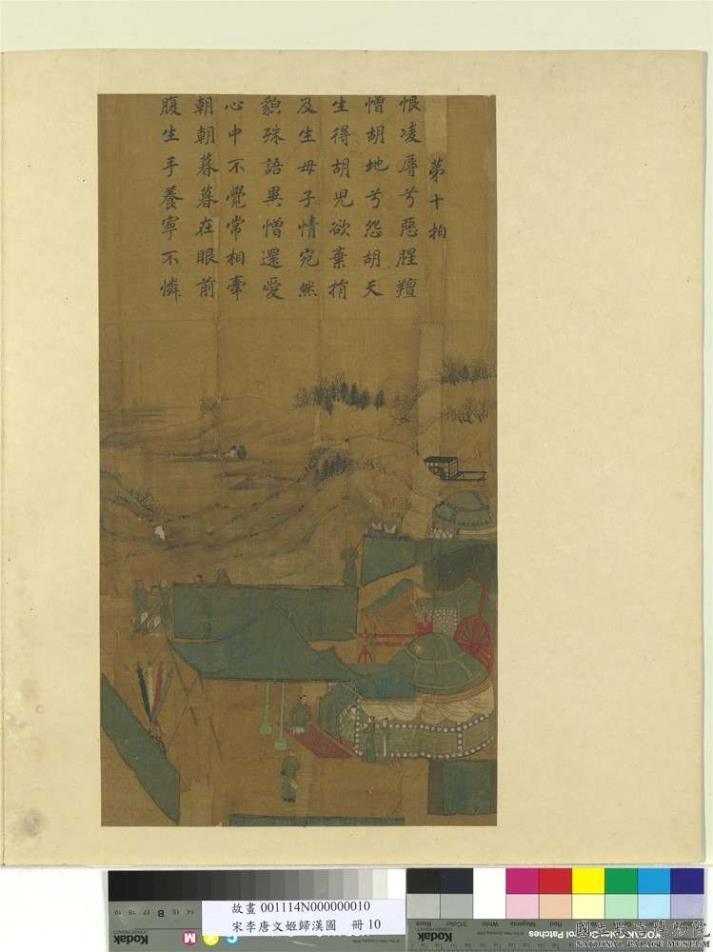 第十拍
恨凌辱兮惡腥羶
憎胡地兮怨胡天
生得胡兒欲棄捐
及生母子情宛然
貌殊語異憎還愛
心中不覺常相牽
朝朝暮暮在眼前
腹生手養寧不憐
故畫 001114N000000010
宋李唐文姬歸漢圖 冊 10
Kodak
B
M
Kodak